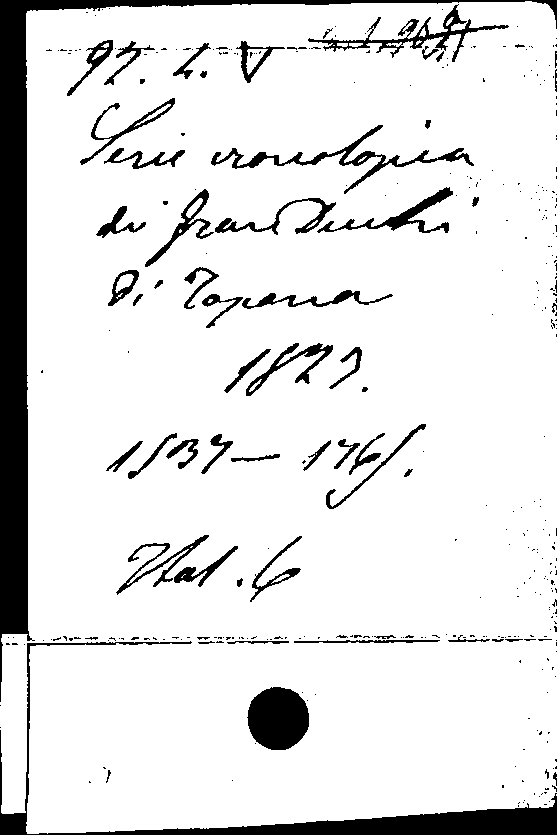 92. L. V
Serie cronologica
di Gran Duchi
di Toscana
1823.
1537 — 1765.
Ital. 6